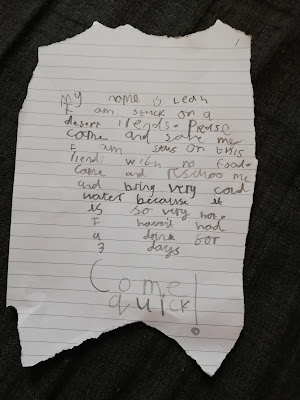 My name is Leah
I am stuck on a
desert Irends. Please
come and save me
I am stus on this
Irend with no food.
come and reschoo me
and bring very cold
water because it
is so very hot.
I havn't had
a drink for
3 days
Come
quick!